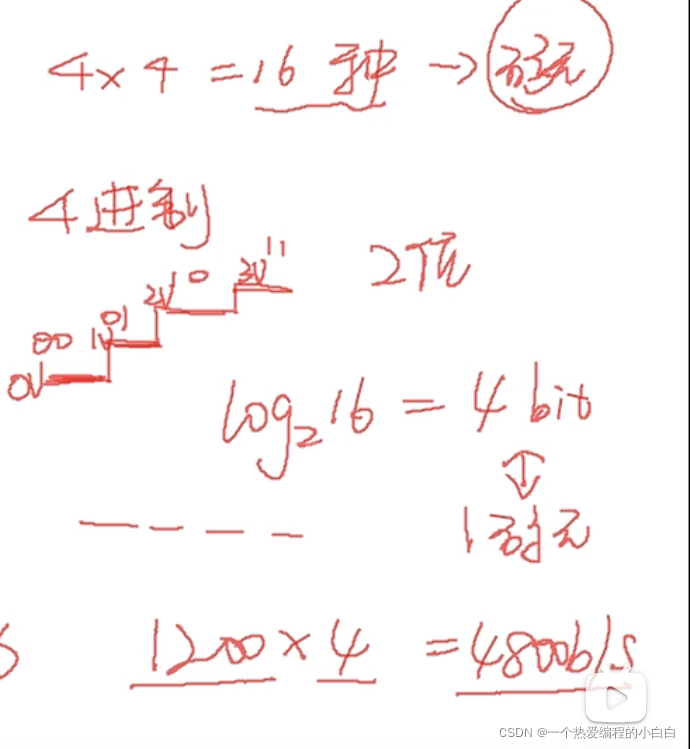 4×4=16种→码元
4进制
00 0V 01 1V 10 2V 11 3V
2位
log₂16=4bit
↕
1码元
1200×4=4800b/s
CSDN @一个热爱编程的小白白